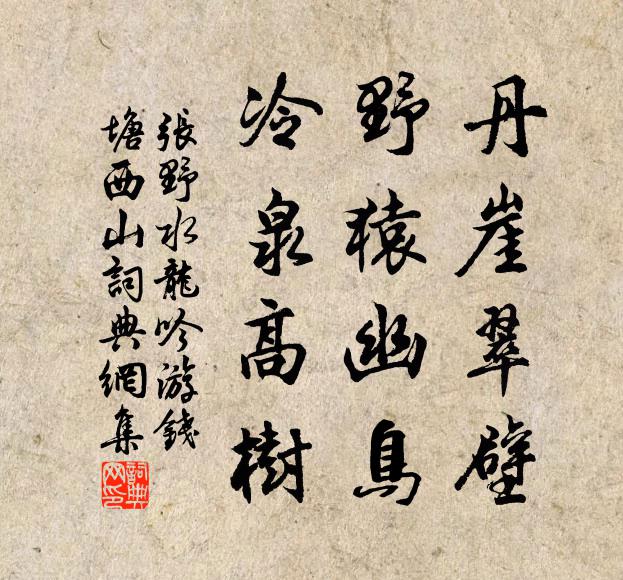 丹崖翠壁
野猿幽鳥
冷泉高樹
張野水龍吟游錢
塘西山詞典網集
詞典網印